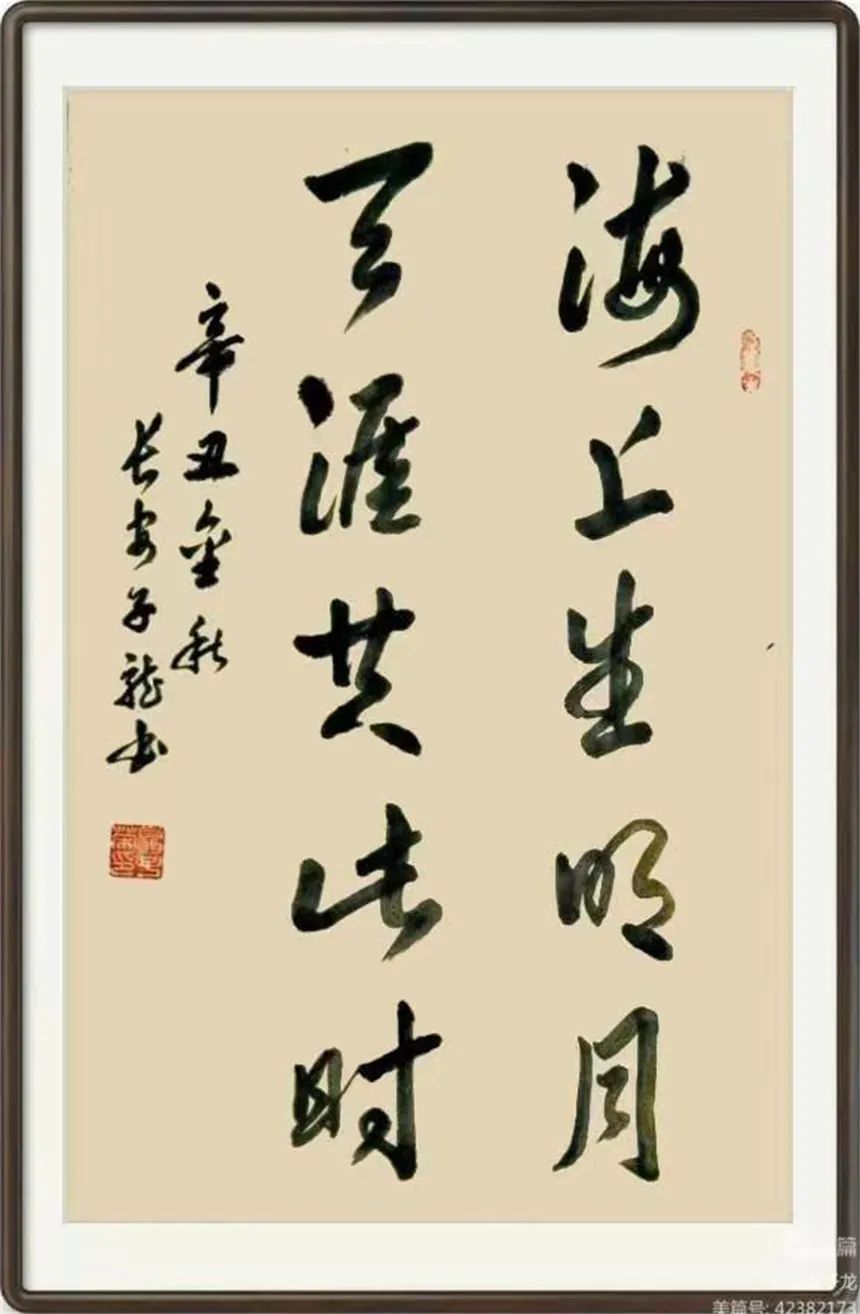 海上生明月
天涯共此时
辛丑金秋
长安子龙书
篇
龙
美篇号: 42382171